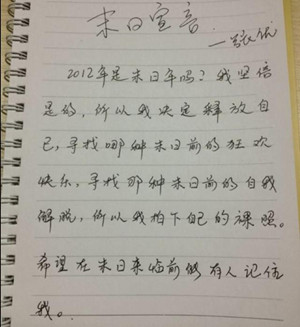 末日宣言
2012年是末日年吗？我坚信
是的，所以我决定释放自
己，寻找那种末日前的狂欢
快乐，寻找那种末日前的自我
解脱，所以我拍下自己的裸照。
希望在末日来临前能有人记住
我。